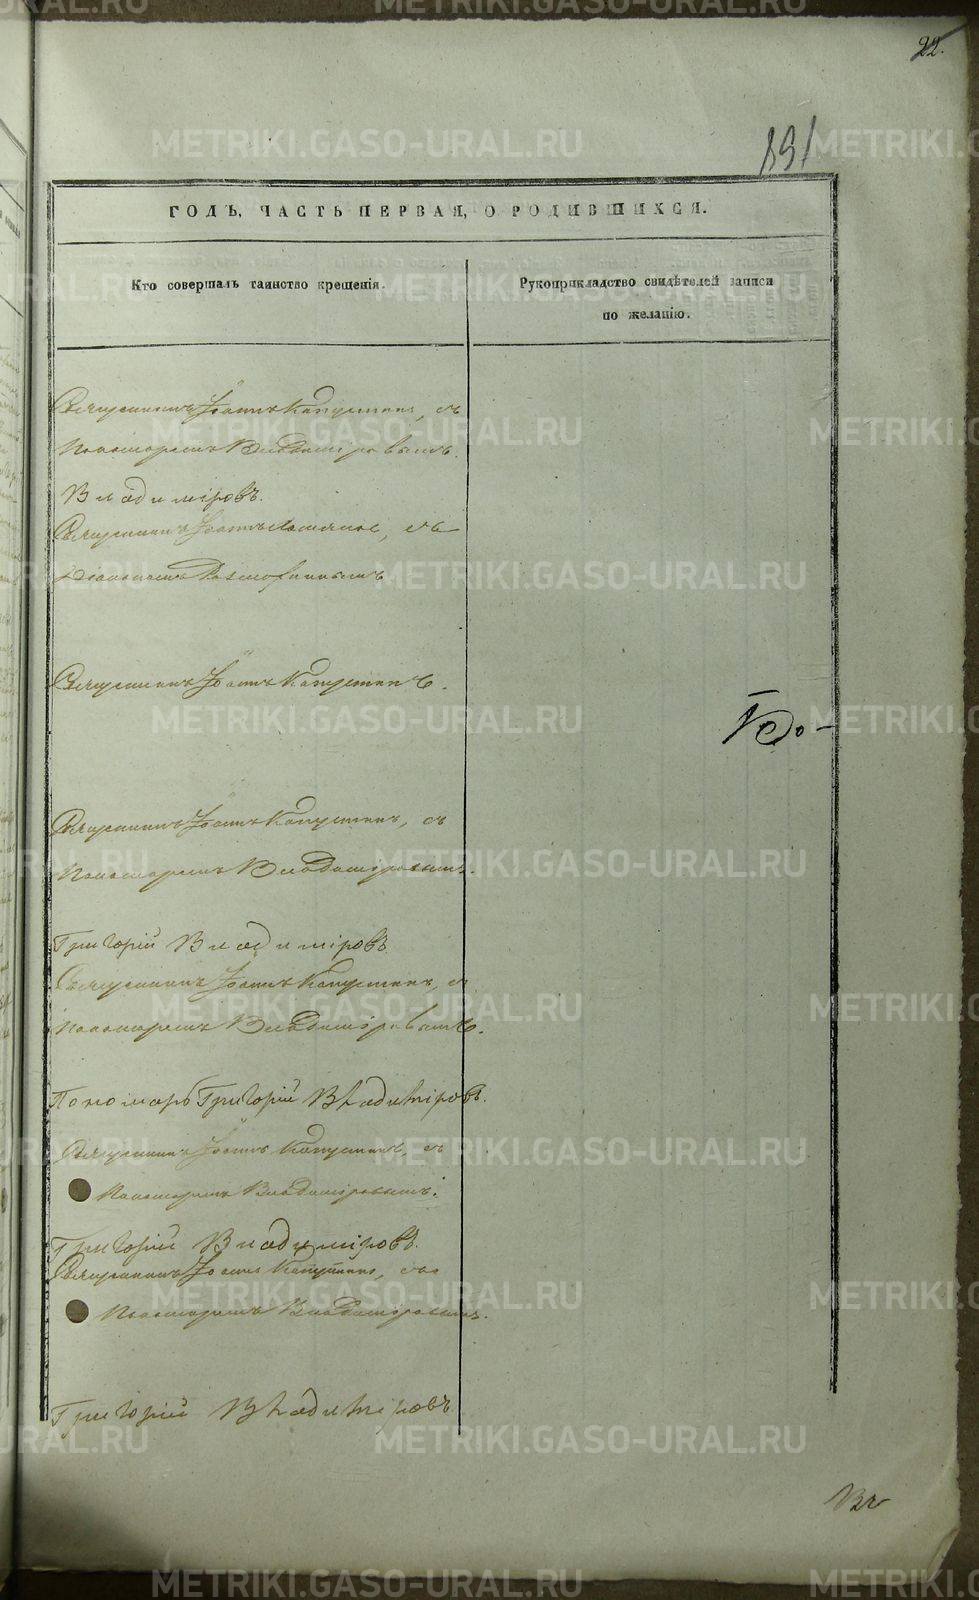 22.
191
ГОДЪ, ЧАСТЬ ПЕРВАЯ, О РОДИВШИХСЯ.
Кто совершалъ таинство крещенія.
Рукоприкладство свидѣтелей записи
по желанію.
Священникъ Іоаннъ Капустинъ, съ
Пономаремъ Владиміровымъ.
Владиміровъ.
Священникъ Іоаннъ съ
Священникъ Іоаннъ Капустинъ.
Священникъ Іоаннъ Капустинъ, съ
Пономаремъ Владиміровымъ.
Григорій Владиміровъ
Священникъ Іоаннъ Капустинъ, съ
Пономаремъ Владиміровымъ.
Пономарь Григорій Владиміровъ.
Священникъ Іоаннъ Капустинъ съ
Пономаремъ Владиміровымъ.
Григорій Владиміровъ.
Священникъ Іоаннъ Капустинъ, съ
Пономаремъ Владиміровымъ.
Григорій Владиміровъ
METRIKI.GASO-URAL.RU